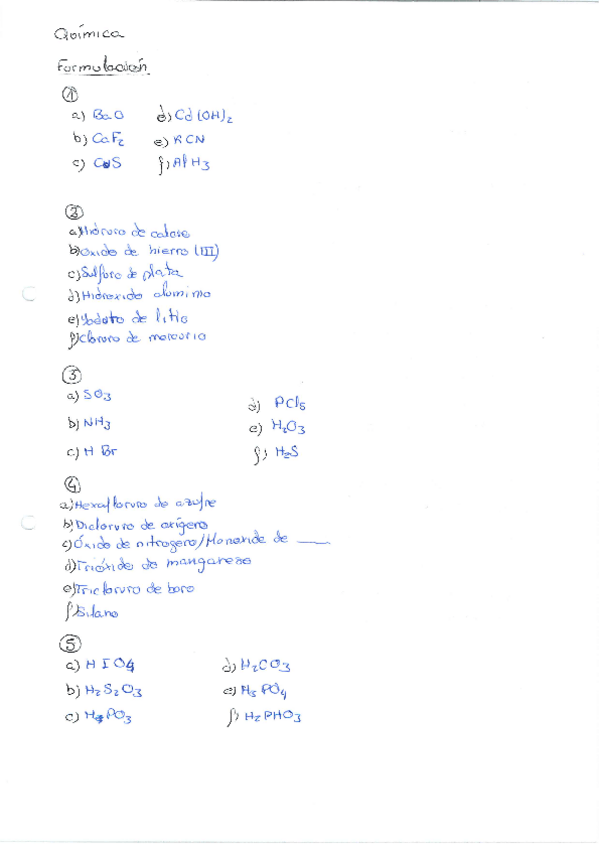 Química
Formulación
①
a) BaO d) Cd(OH)₂
b) CaF₂ e) KCN
c) S f) AlH₃
②
a) Hidruro de
b) Óxido de hierro (III)
c) Sulfuro de plata
d) Hidróxido aluminio
e) de litio
f) Cloruro de mercurio
③
a) SO₃ d) PCl₅
b) NH₃ e) O₃
c) HBr f) H₂S
④
a) Hexafloruro de azufre
b) Dicloruro de oxígeno
c) Óxido de nitrogeno/Monoxide de ____
d) Trióxido de manganeso
e) Tricloruro de boro
f) Silano
⑤
a) HIO₄ d) H₂CO₃
b) H₂S₂O₃ e) H₃PO₄
c) f) H₂PHO₃